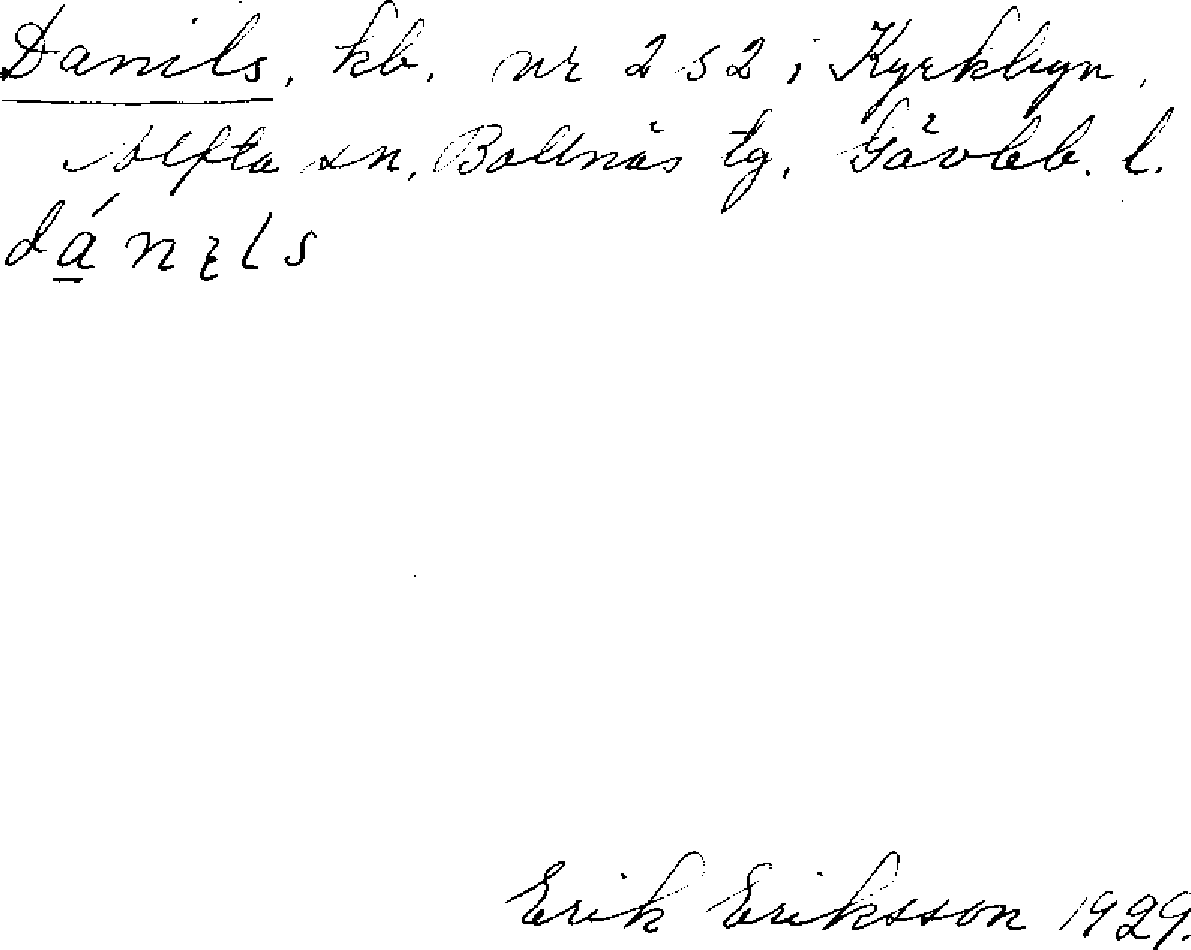 Danils, kb. nr 2 s 2 i Kyrkbyn,
Alfta sn, Bollnäs tg, Gävleb. l.
dánɩls
Erik Eriksson 1929.